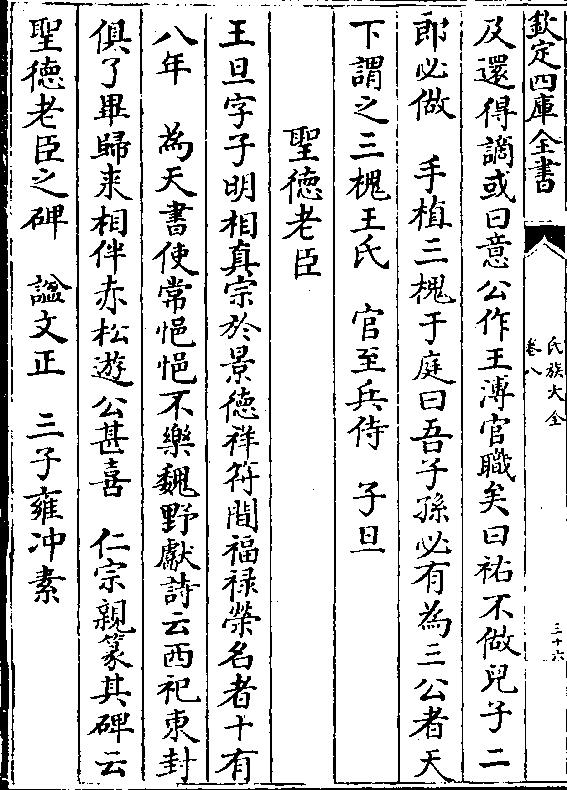 欽定四庫全書
氏族大全
卷八
三十六
及還得謫或曰意公作王溥官職矣曰祐不做兒子二
郎必做　手植三槐于庭曰吾子孫必有為三公者天
下謂之三槐王氏　官至兵侍　子旦
聖德老臣
王旦字子明相真宗於景德祥符間福禄榮名者十有
八年　為天書使常悒悒不樂魏野獻詩云西祀東封
俱了畢歸来相伴赤松遊公甚喜　仁宗親篆其碑云
聖德老臣之碑　諡文正　三子雍冲素